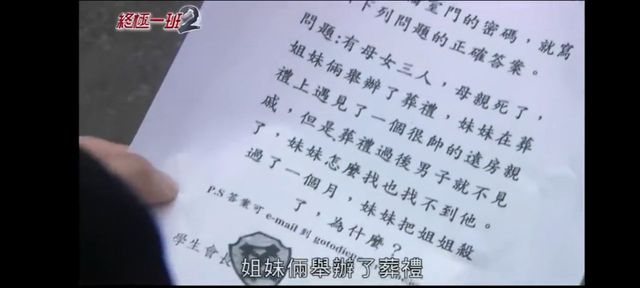 終極一班2
室門的密碼，就寫
下列問題的正確答案。
問題:有母女三人，母親死了，
姐妹倆舉辦了葬禮，妹妹在葬
禮上遇見了一個很帥的遠房親
戚，但是葬禮過後男子就不見
了，妹妹怎麼找也找不到他。
過了一個月，妹妹把姐姐殺
了，為什麼？
P.S答案可 e-mail 到
學生會長
姐妹倆舉辦了葬禮